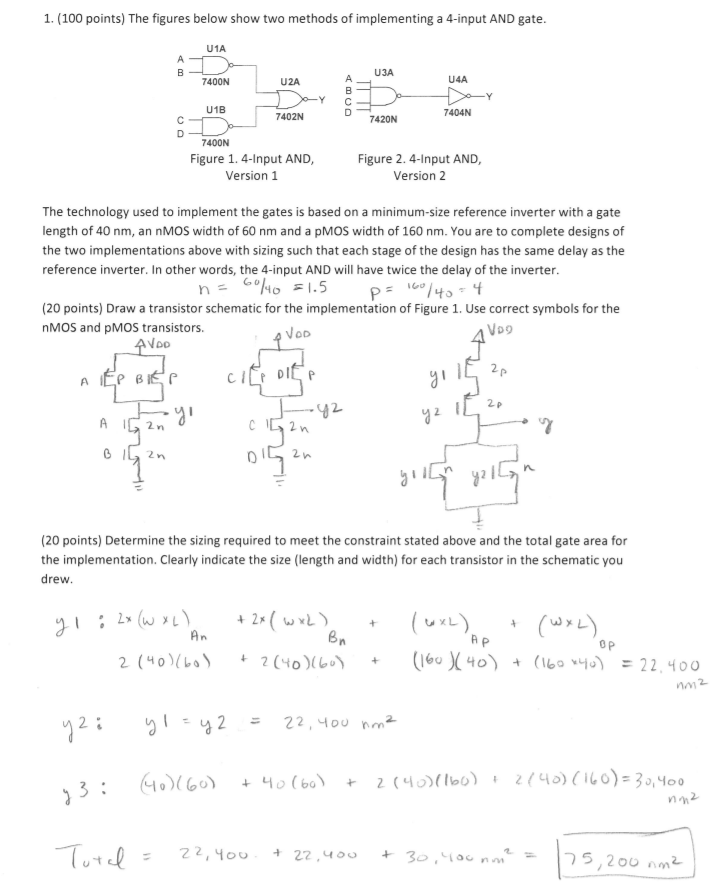 1. (100 points) The figures below show two methods of implementing a 4-input AND gate.
U1A
A
B
7400N
U2A
Y
7402N
U1B
C
D
7400N
U3A
A
B
C
D
7420N
U4A
Y
7404N
Figure 1. 4-Input AND,
Version 1
Figure 2. 4-Input AND,
Version 2
The technology used to implement the gates is based on a minimum-size reference inverter with a gate
length of 40 nm, an nMOS width of 60 nm and a pMOS width of 160 nm. You are to complete designs of
the two implementations above with sizing such that each stage of the design has the same delay as the
reference inverter. In other words, the 4-input AND will have twice the delay of the inverter.
n = 60/40 = 1.5 p = 160/40 = 4
(20 points) Draw a transistor schematic for the implementation of Figure 1. Use correct symbols for the
nMOS and pMOS transistors.
VDD
A P B P
y1
A 2n
B 2n
VDD
C P D P
y2
C 2n
D 2n
VDD
y1 2p
y2 2p
y
y1 n y2 n
(20 points) Determine the sizing required to meet the constraint stated above and the total gate area for
the implementation. Clearly indicate the size (length and width) for each transistor in the schematic you
drew.
y1 : 2x (w x L)An + 2x (w x L)Bn + (w x L)Ap + (w x L)Bp
2 (40)(60) + 2(40)(60) + (160)(40) + (160 x 40) = 22,400 nm2
y2 : y1 = y2 = 22,400 nm2
y3 : (40)(60) + 40(60) + 2(40)(160) + 2(40)(160) = 30,400 nm2
Total = 22,400. + 22,400 + 30,400 nm2 = 75,200 nm2